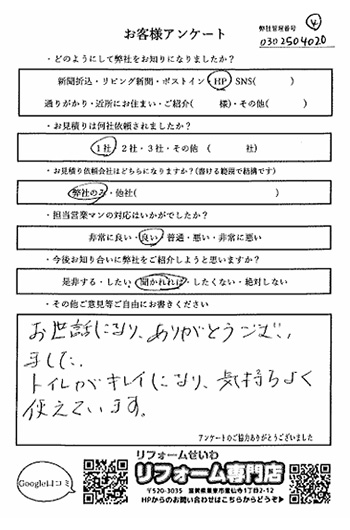 お客様アンケート
弊社管理番号
0302504020
・どのようにして弊社をお知りになりましたか?
新聞折込・リビング新聞・ポストイン・HP・SNS( )
通りがかり・近所にお住まい・ご紹介( 様)・その他( )
・お見積りは何社依頼されましたか?
1社・2社・3社・その他 ( 社)
・お見積り依頼会社はどちらになりますか?(書ける範囲で結構です)
弊社のみ・他社( )
・担当営業マンの対応はいかがでしたか?
非常に良い・良い・普通・悪い・非常に悪い
・今後お知り合いに弊社をご紹介しようと思いますか?
是非する・したい・聞かれれば・したくない・絶対しない
・その他ご意見等ご自由にお書きください
お世話になり、ありがとうござい
ました。
トイレがキレイになり、気持ちよく
使えています。
アンケートのご協力ありがとうございました
Google口コミ
リフォームせいわ
リフォーム専門店
〒520-3035 滋賀県栗東市霊仙寺1丁目2-12
HPからのお問い合わせはこちらからどうぞ▶